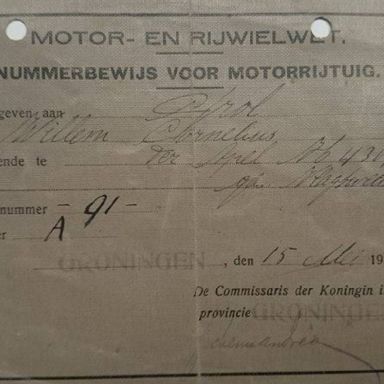 MOTOR- EN RIJWIELWET.
NUMMERBEWIJS VOOR MOTORRIJTUIG.
geven aan
Willem Cornelius
ende te Ter Apel No 430
nummer - 91 -
er A
GRONINGEN, den 15 Mei 19
De Commissaris der Koningin i
provincie GRONINGEN